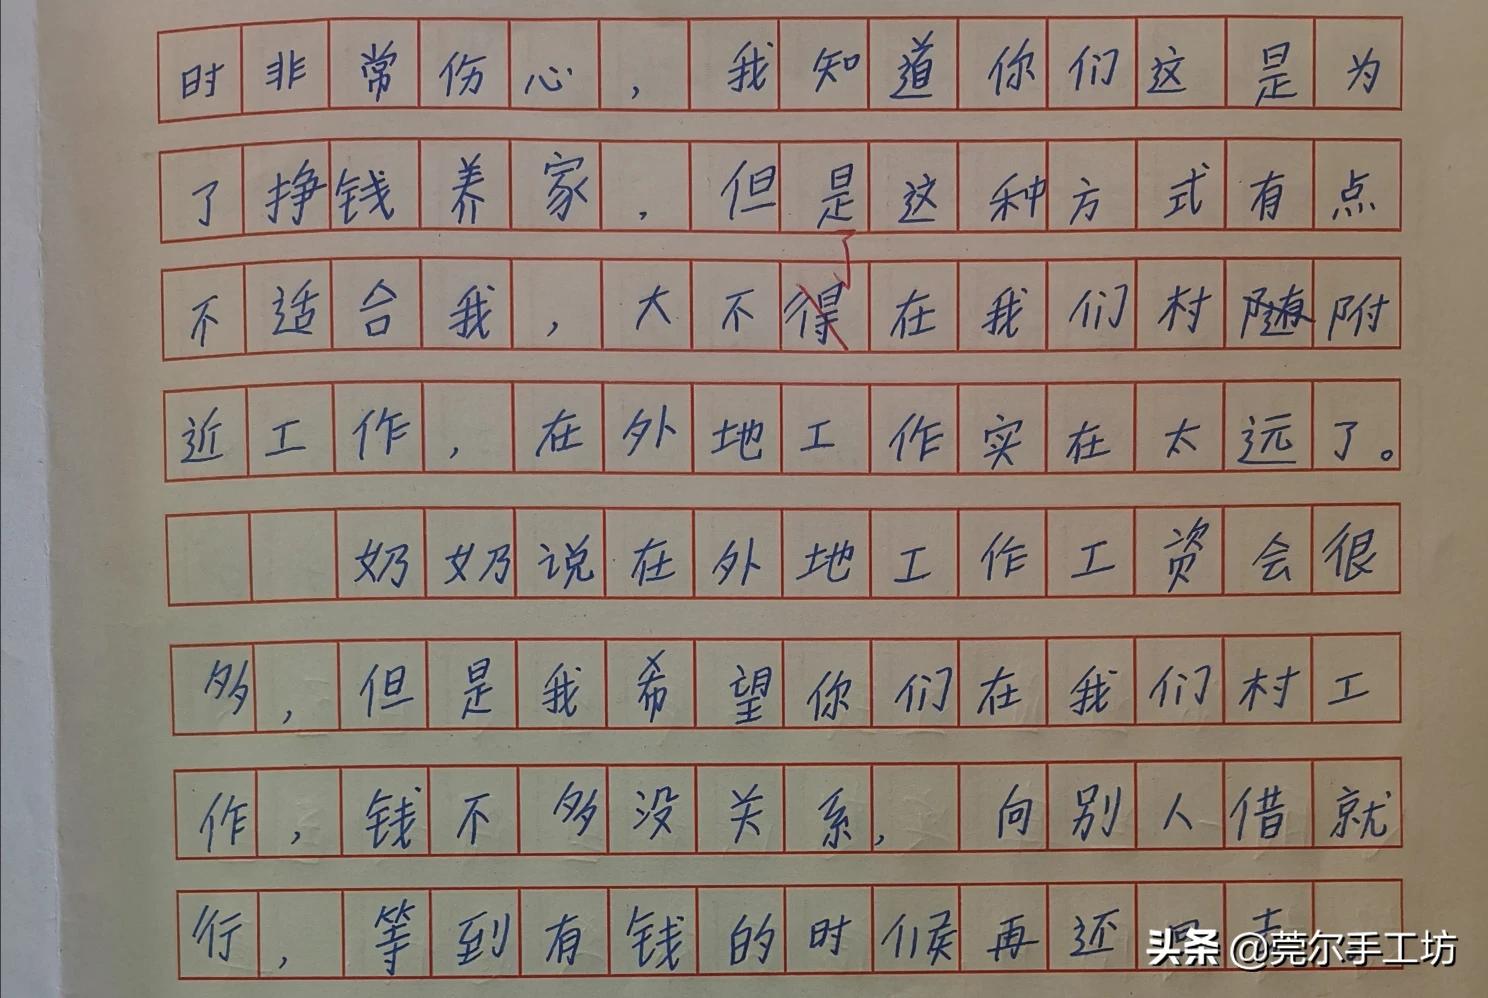 时非常伤心，我知道你们这是为
了挣钱养家，但是这种方式有点
不适合我，大不了在我们村随附
近工作，在外地工作实在太远了。
奶奶说在外地工作工资会很
多，但是我希望你们在我们村工
作，钱不多没关系，向别人借就
行，等到有钱的时候再还回去。
头条 @莞尔手工坊